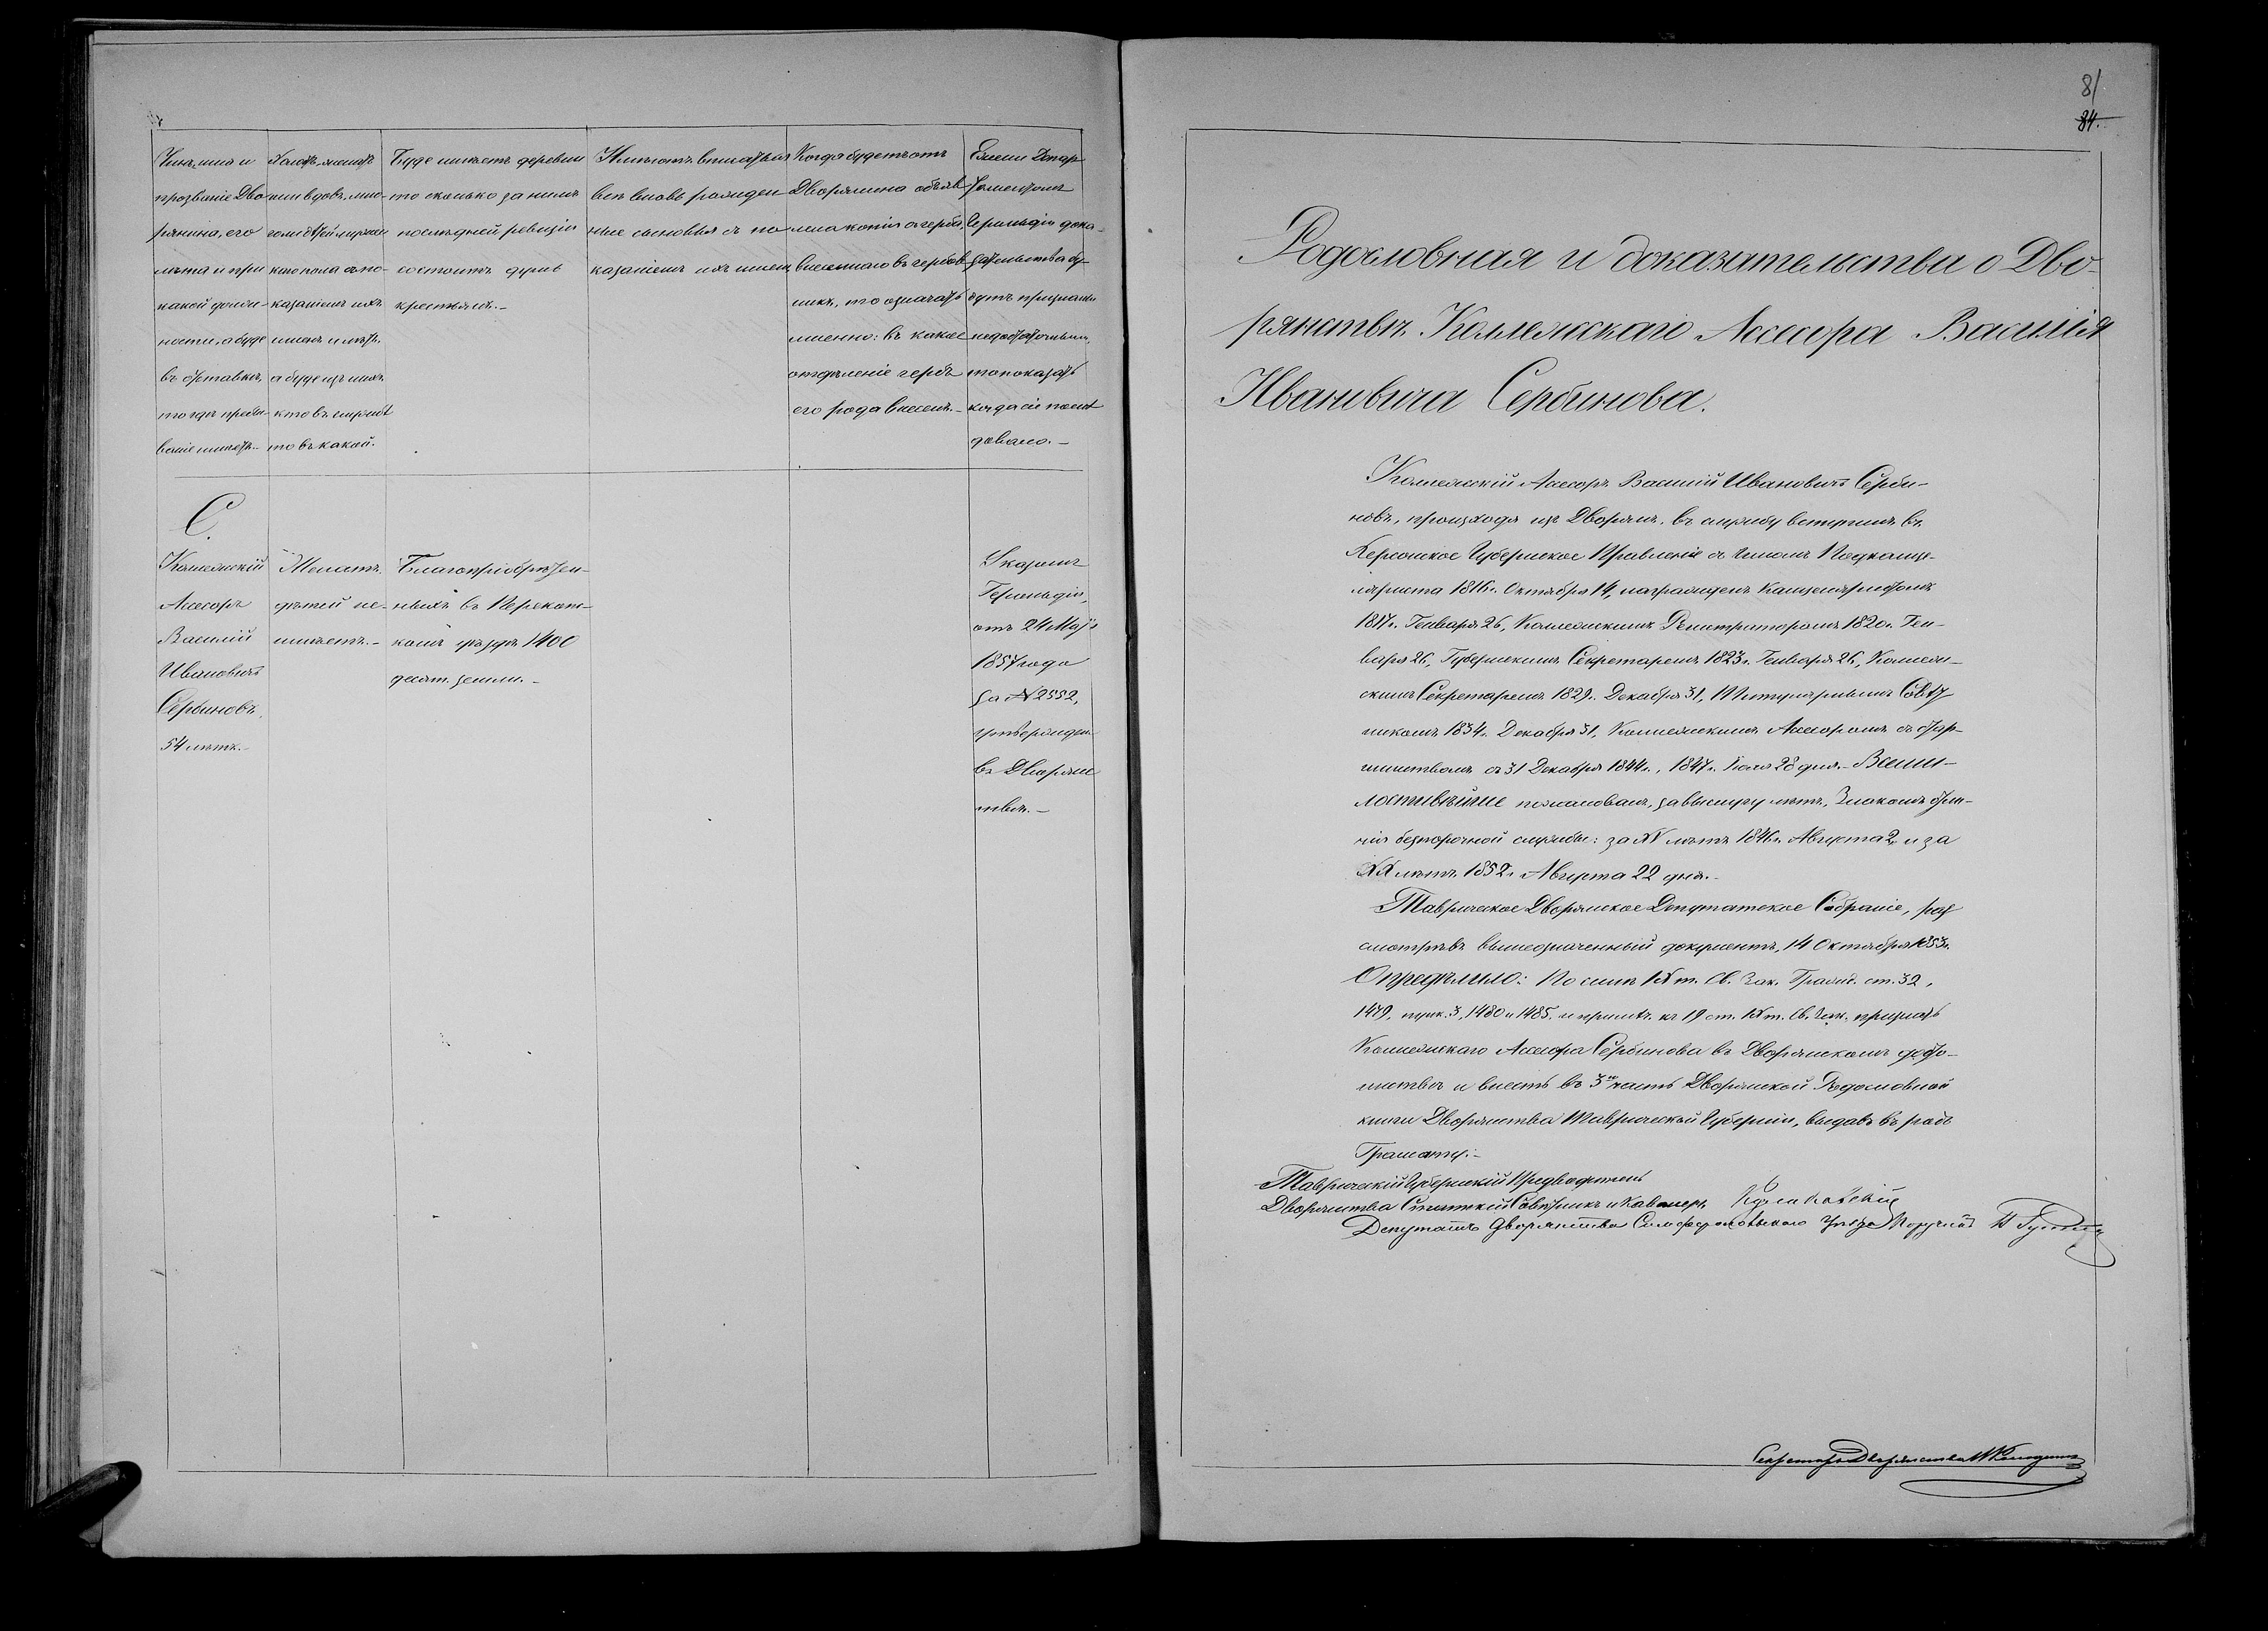 Чинъ, имя и
прозваніе Дво-
рянина, его
лѣта и при
какой долж-
ности, а буде
въ отставкѣ,
то гдѣ пребы-
ваніе имѣетъ.-
Холостъ, женатъ
или вдовъ, мно-
го ли дѣтей мужес-
каго пола съ по-
казаніемъ ихъ
именъ и лѣтъ,
а буде изъ нихъ
кто въ службѣ
то въ какой.
Буде имѣетъ деревни
то сколько за нимъ
послѣдней ревизіи
состоитъ душъ
крестьянъ.-
Имѣютъ вписаться
всѣ вновь рожден-
ные сыновья съ по-
казаніемъ ихъ именъ
Когда будетъ отъ
Дворянина объяв-
лена копія съ герба,
внесеннаго въ гербов-
никъ, то означать
именно: въ какое
отдѣленіе гербъ
его рода внесенъ.-
Ежели Депар-
таментомъ
Герольдіи дока-
зательства бу-
дутъ признаны
недостаточными,
то показать
когда сіе послѣ-
довало.-
С.
Коллежскій
Ассесоръ
Василій
Ивановичъ
Сербиновъ,
54 лѣтъ.-
Женатъ.
дѣтей не-
имѣетъ.-
Благопріобрѣтен-
ныхъ въ Перекоп-
комъ уѣздѣ 1400
десят. земли.-
Указомъ
Герольдіи,
отъ 24 Маія
1857 года
за № 2552,
утвержденъ
въ Дворянс
твѣ.-
81
84.
Родословная и доказательства о Дво-
рянствѣ Коллежскаго Ассесора Василія
Ивановича Сербинова.
Коллежскій Ассесоръ Василій Ивановичъ Серби-
новъ, происходя изъ Дворянъ, въ службу вступилъ въ
Херсонское Губернское Правленіе съ чиномъ Подканце-
ляриста 1816г. Октября 14, награжденъ Канцеляристомъ
1817г. Генваря 26, Коллежскимъ Регистраторомъ 1820г. Ген-
варя 26, Губернскимъ Секретаремъ 1823г. Генваря 26, Коллеж-
скимъ Секретаремъ 1829г. Декабря 31, Титулярнымъ Совѣт
никомъ 1834г. Декабря 31, Коллежскимъ Ассесоромъ съ стар-
шинствомъ съ 31 Декабря 1844г., 1847г. Іюля 28 дня.- Всеми-
лостивѣйше пожалованъ, за выслугу лѣтъ, Знакомъ отли-
чія безпорочной службы: за XV лѣтъ 1846г. Августа 22 и за
XX лѣтъ 1852г. Августа 22 дня.-
Таврическое Дворянское Депутатское Собраніе, раз
смотрѣвъ вышеозначенный документъ, 14 Октября 1853г.
Опредѣлило: По силѣ IX т. Св. Зак. Гражд. ст. 32,
1479, пунк. 3, 1480 и 1485. и примѣч. къ 19 ст. IX т. Св. Зак. признать
Коллежскаго Ассесора Сербинова въ Дворянскомъ досто-
инствѣ и внесть въ 3ю часть Дворянской Родословной
книги Дворянства Таврической Губерніи, выдавъ въ родъ
Грамату.-
Таврическій Губернскій Предводитель
Дворянства Статскій Совѣтникъ и Кавалеръ
Депутатъ Дворянства Симферопольскаго Уѣзда Поручикъ
Секретарь Дворянства